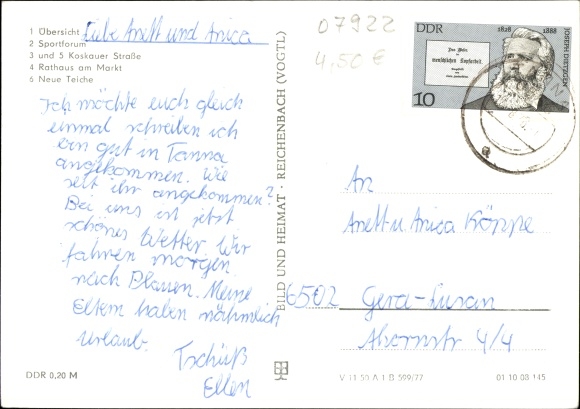 1 Übersicht
2 Sportforum
3 und 5 Koskauer Straße
4 Rathaus am Markt
6 Neue Teiche
Liebe Anett und Anica
Ich möchte euch gleich
einmal schreiben ich
bin gut in Tanna
angekommen. Wie
seit ihr angekommen?
Bei uns ist jetzt
schönes Wetter. Wir
fahren morgen
nach Plauen. Meine
Eltern haben nähmlich
Urlaub.
Tschüß
Ellen
DDR 0,20 M
BILD UND HEIMAT · REICHENBACH (VOGTL)
07922
4,50 €
DDR
1828 1888
JOSEPH DIETZGEN
Das Wesen
der
menschlichen Kopfarbeit
10
An
Anett u. Anica Köppe
6502 Gera-Lusan
Ahornstr 4/4
V 11 50 A 1 B 599/77
01 10 08 145